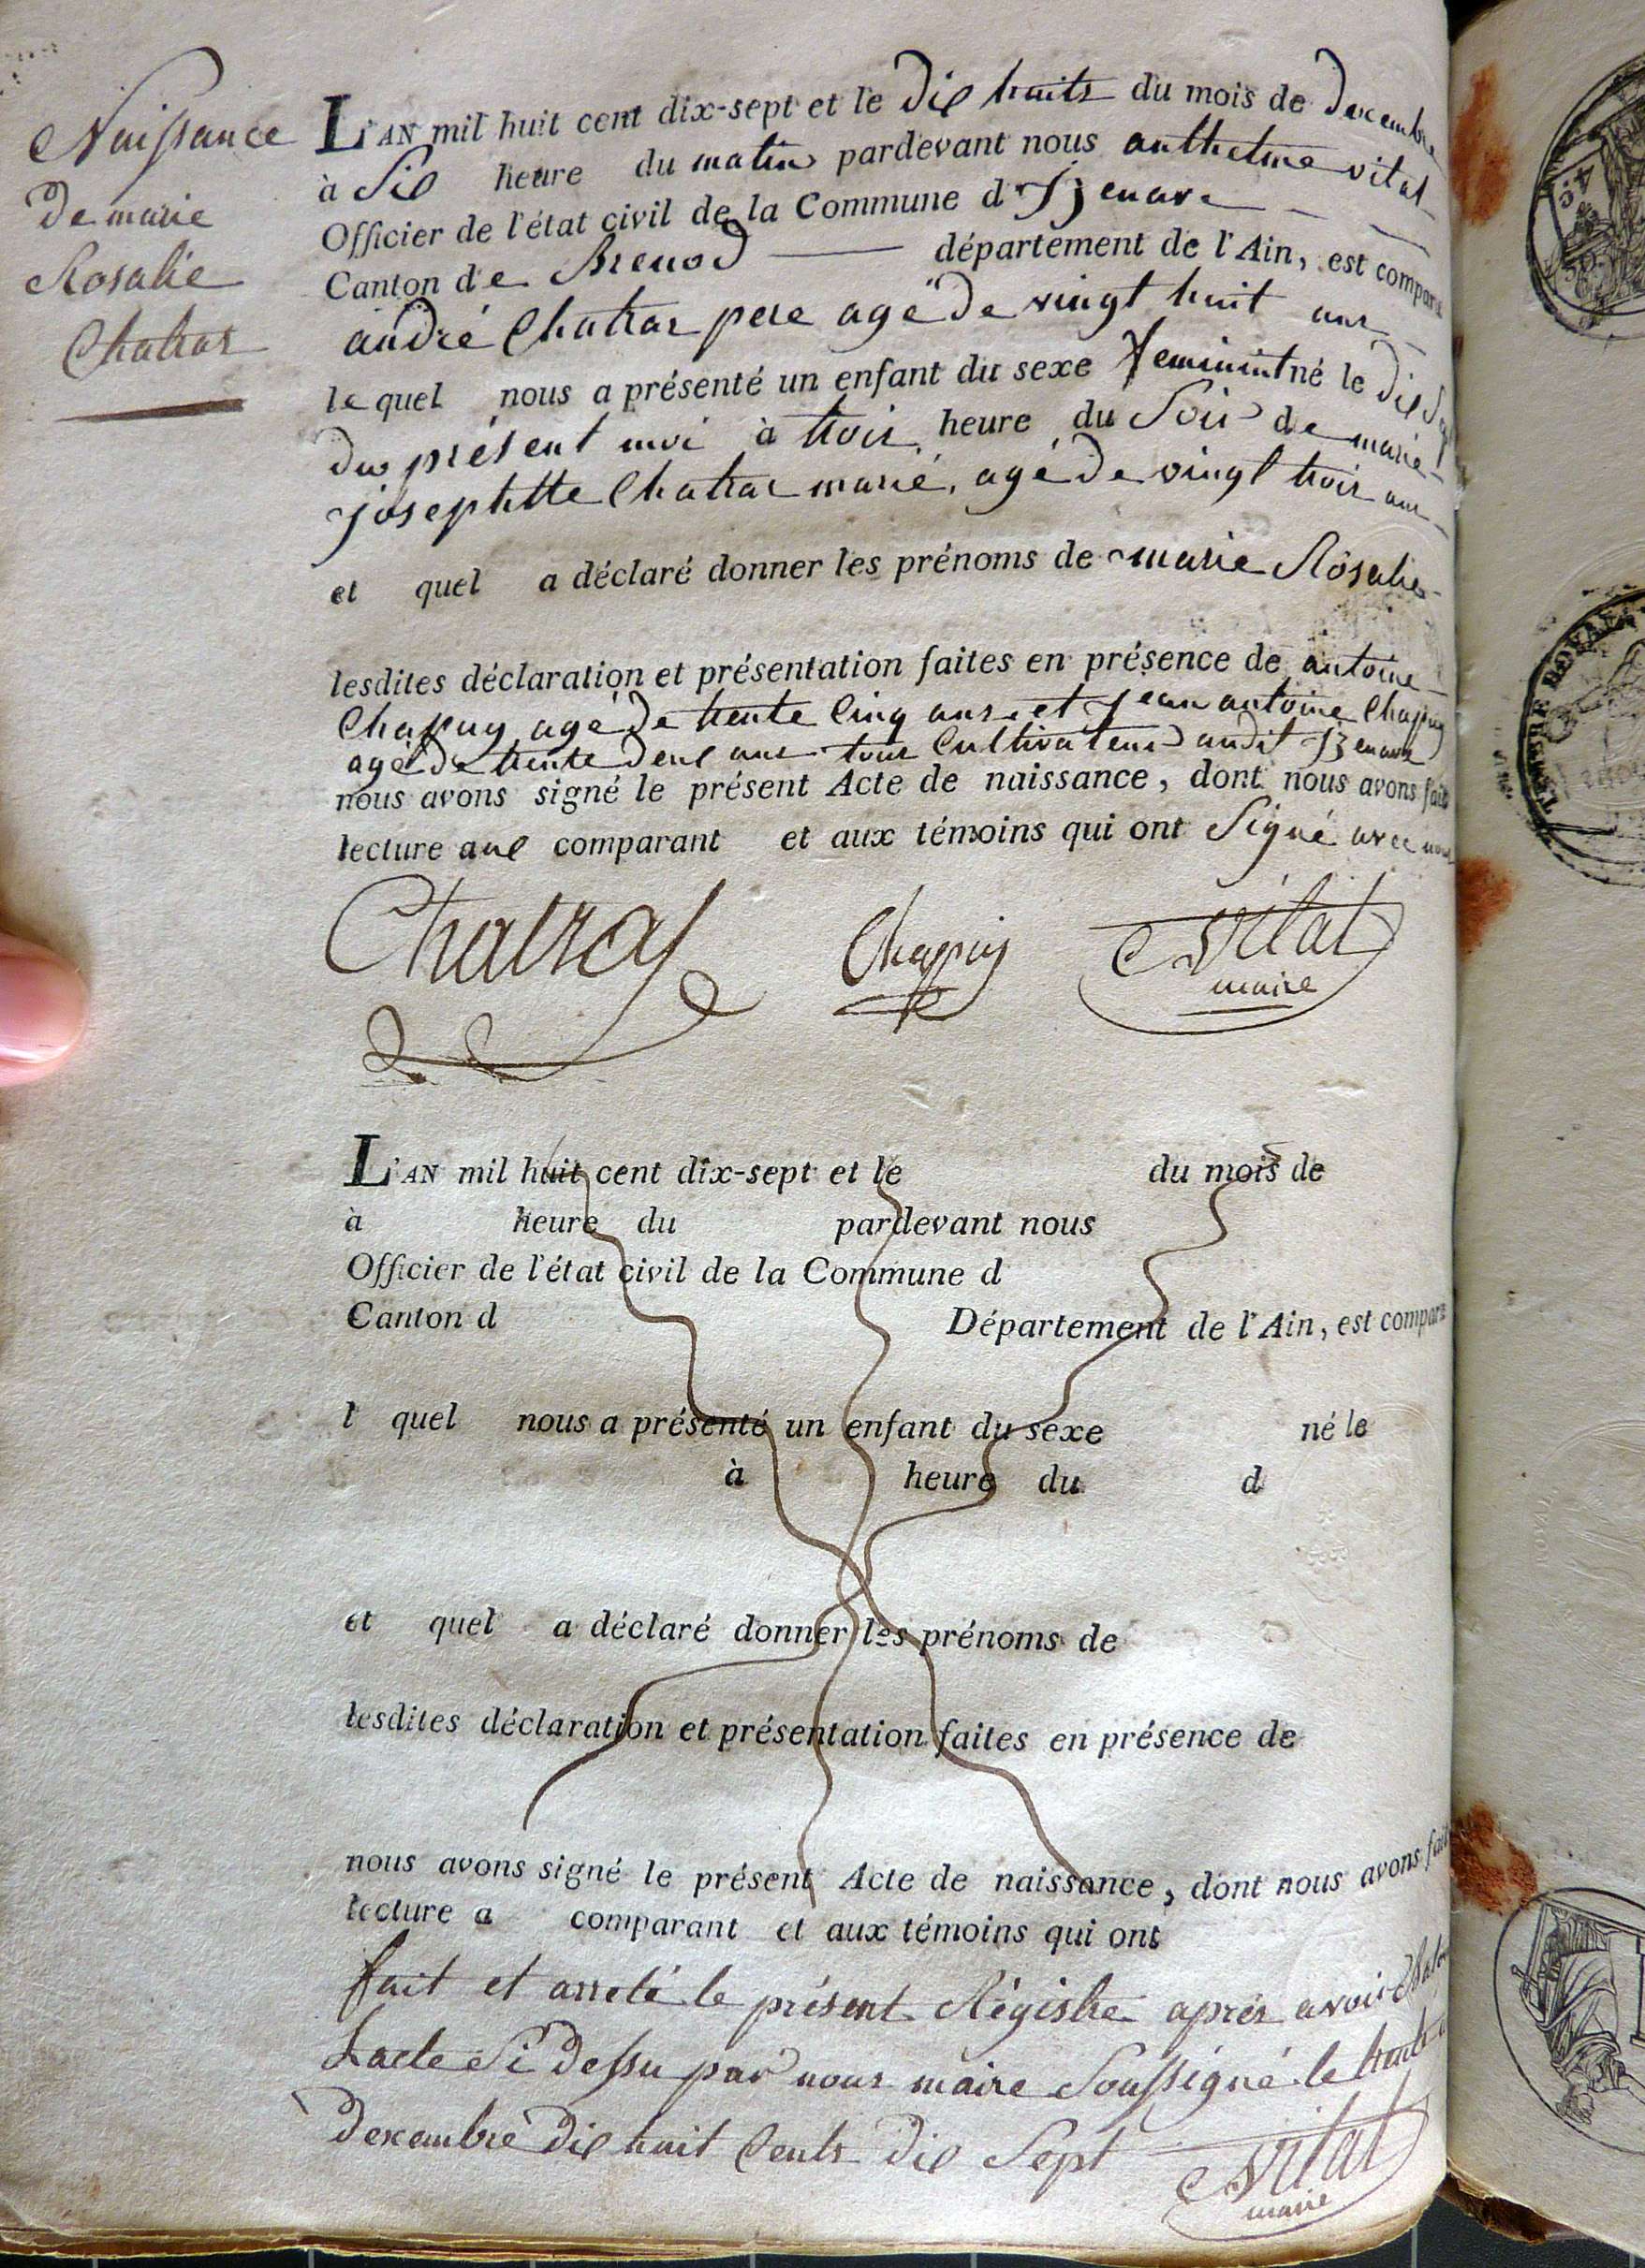 Naissance
de marie
Rosalie
Chatras
L'AN mil huit cent dix-sept et le dix huits du mois de decembre
à Six heure du matin pardevant nous anthelme vital
Officier de l'état civil de la Commune d'Izenave
Canton de Brenod département de l'Ain, est compar
andré Chatras pere agé de vingt huit ans
lequel nous a présenté un enfant du sexe feminint né le dix
du présent moi à trois heure du Soir de marie
josephtte Chatras marié, agé de vingt trois ans
et quel a déclaré donner les prénoms de marie Rosalie
lesdites déclaration et présentation faites en présence de antoine
Chapuy agé de trente Cinq ans et jean antoine Chapuy
agé de trente deux ans tous Cultivateurs audit Izenave
nous avons signé le présent Acte de naissance, dont nous avons fait
lecture aux comparant et aux témoins qui ont Signé avec nous
Chatras Chappuy Vital
maire
L'AN mil huit cent dix-sept et le du mois de
à heure du pardevant nous
Officier de l'état civil de la Commune d
Canton d Département de l'Ain, est compar
l quel nous a présenté un enfant du sexe né le
à heure du d
et quel a déclaré donner les prénoms de
lesdites déclaration et présentation faites en présence de
nous avons signé le présent Acte de naissance, dont nous avons fait
lecture a comparant et aux témoins qui ont
fait et arreté le présent Régistre après avoir
Lacte Si dessu par nous maire Soussigné le trente
decembre dix huit Cents dix Sept
Vital
maire
TIMBRE ROYAL